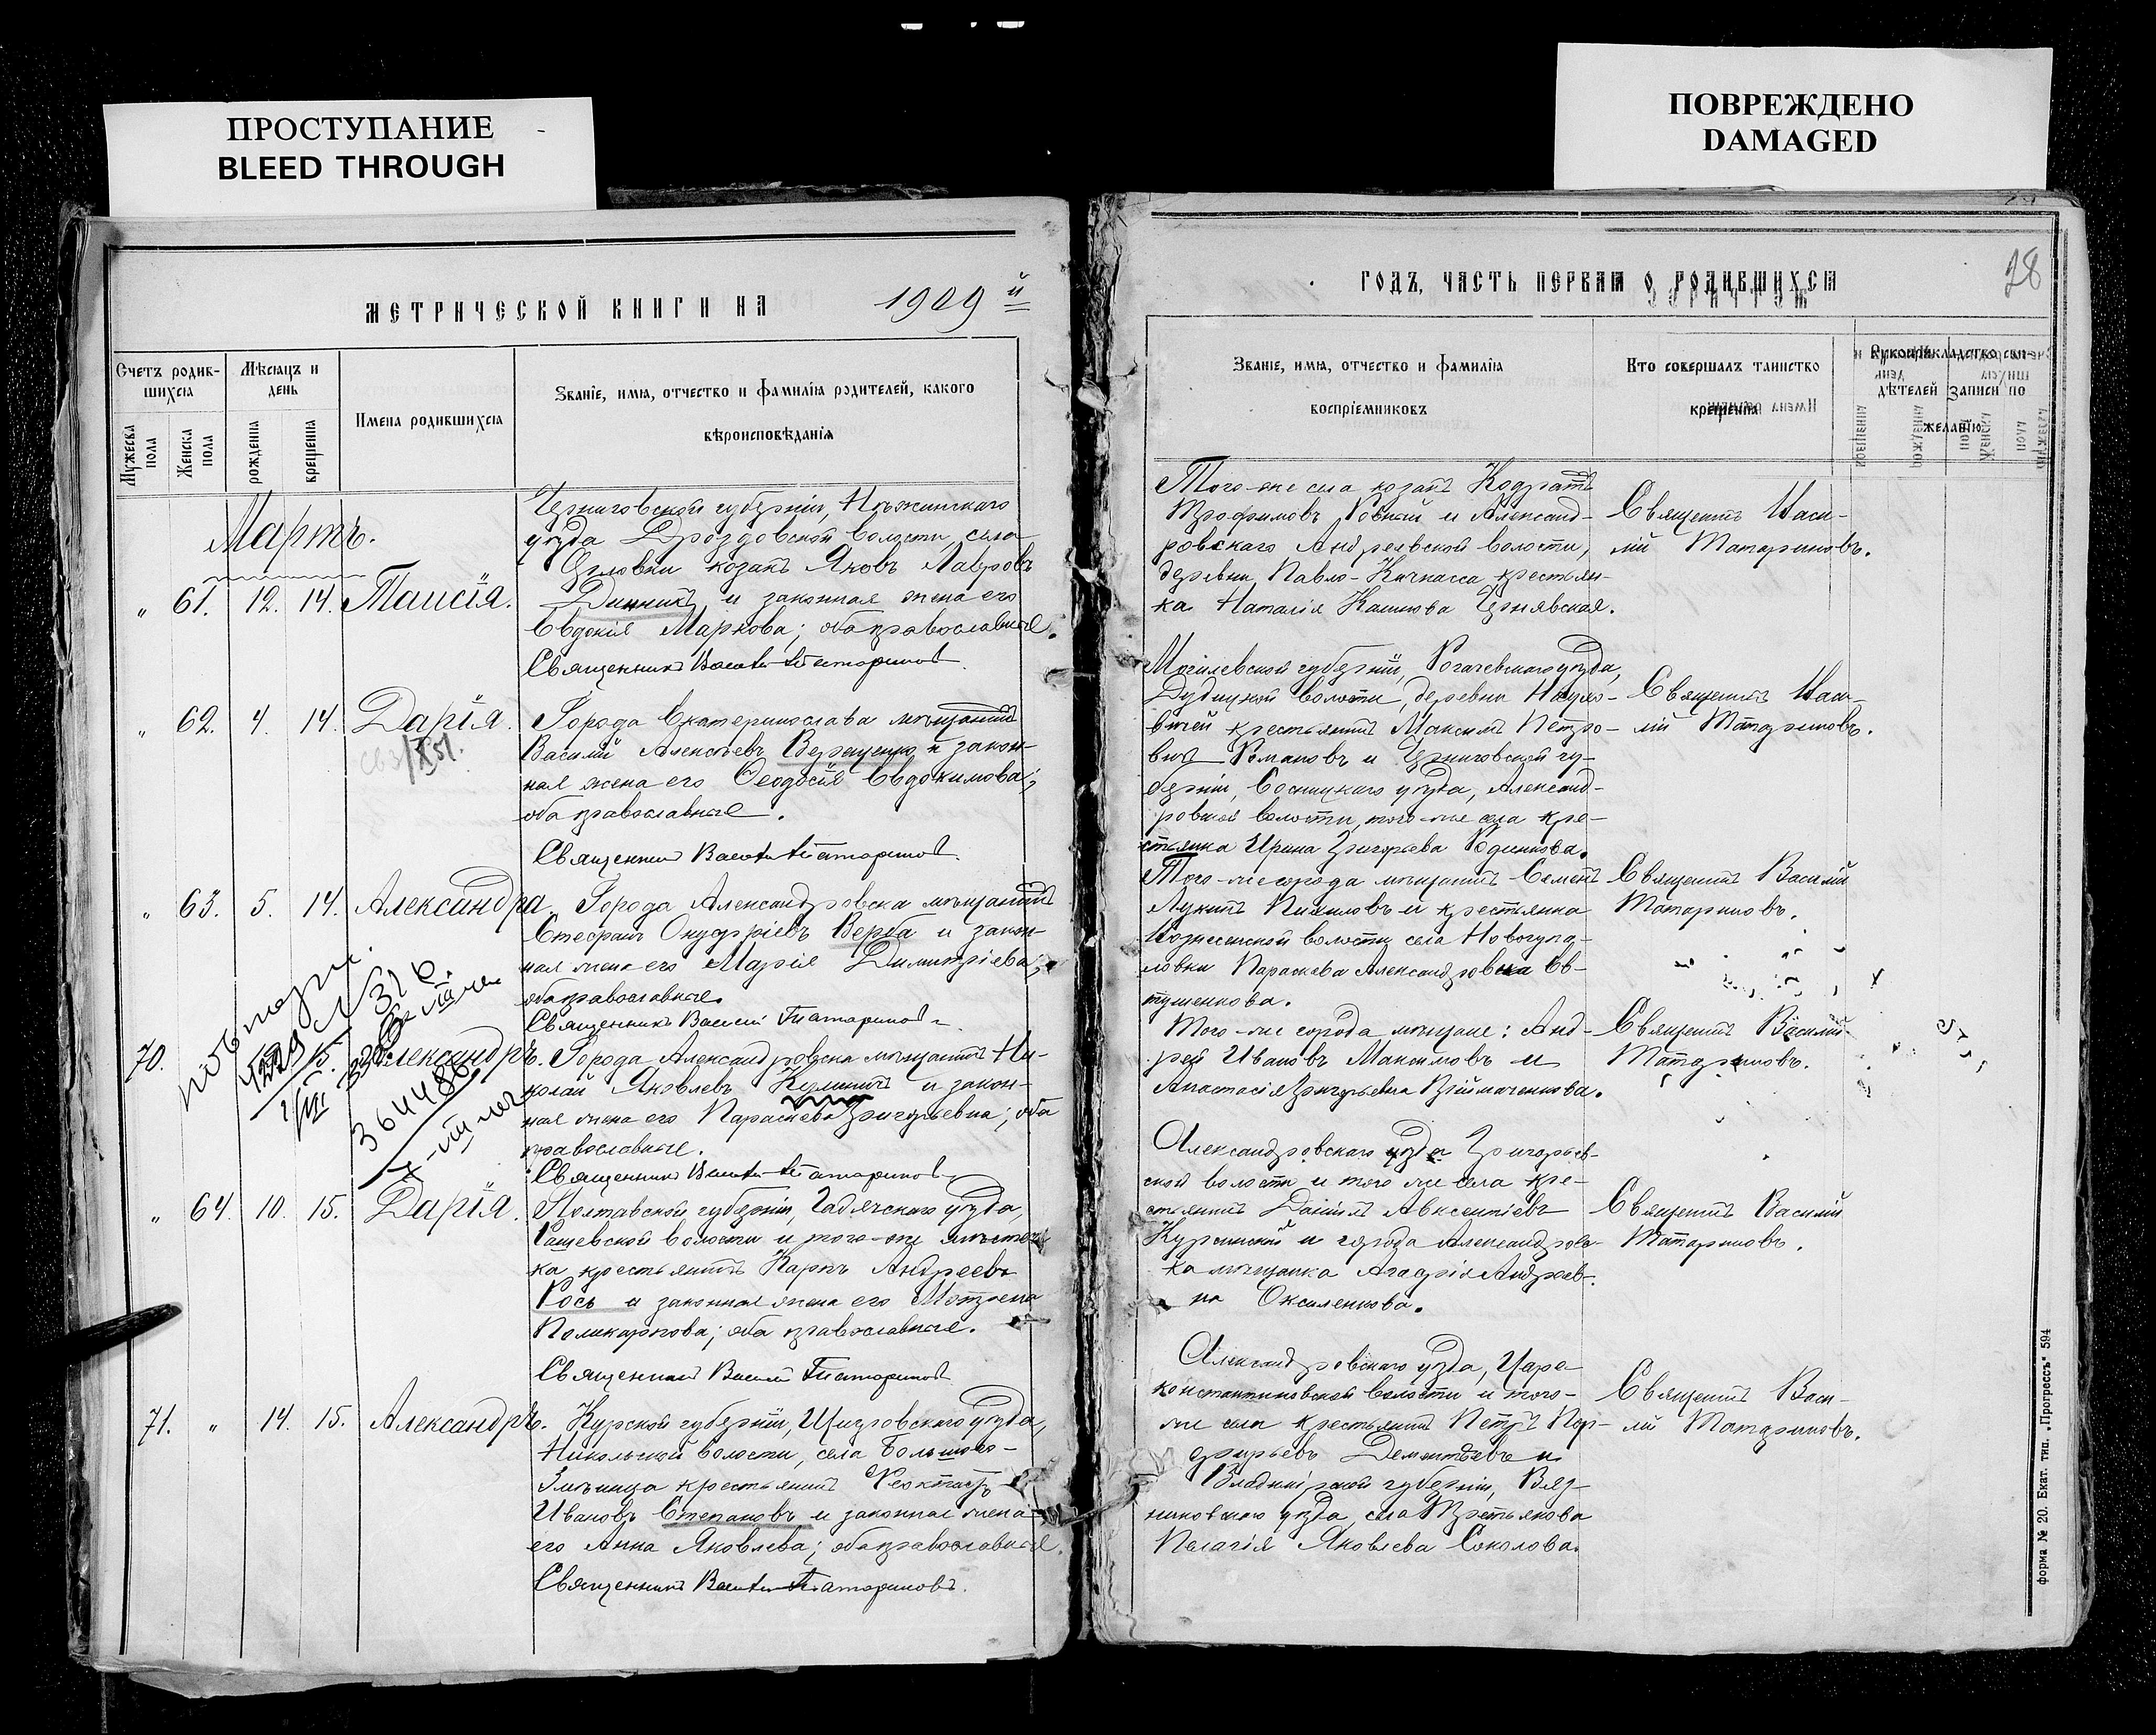 ПРОСТУПАНИЕ
BLEED THROUGH
ПОВРЕЖДЕНО
DAMAGED
28
МЕТРИЧЕСКОЙ КНИГИ НА 1909 й
ГОДЪ, ЧАСТЬ ПЕРВАЯ О РОДИВШИХСЯ
Счетъ родив-
шихся
Мѣсяцъ и
день
Имена родившихся
Званіе, имя, отчество и фамилія родителей, какого
вѣроисповѣданія
Мужеска пола
Женска пола
рожденія
крещенія
Званіе, имя, отчество и фамилія
воспріемниковъ
Кто совершалъ таинство
крещенія
Рукоприкладство сви-
дѣтелей записи по
желанію
Мартъ.
" 61. 12. 14. Таисія.
Черниговской губерніи, Нѣжинскаго
уѣзда Дроздовской волости, села
козакъ Яковъ Лавровъ
и законная жена его
Евдокія Маркова; оба православные.
Священникъ Василій Татариновъ
Того-же села козакъ Кодратъ
Трофимовъ и Александ-
ровскаго Андреевской волости,
деревни Павло-Кичкасса крестьян-
ка Наталія
Священникъ Васи-
лій Татариновъ.
" 62. 4. 14. Дарія.
Города Екатеринослава мѣщанинъ
Василій Алексѣевъ Верещенко и закон-
ная жена его Ѳеодосія Евдокимова;
оба православные.
Священникъ Василій Татариновъ.
Могилевской губерніи, Рогачевскаго уѣзда,
волости, деревни
крестьянинъ Максимъ Петро-
вичъ Романовъ и Черниговской гу-
берніи, Сосницкаго уѣзда, Александ-
ровской волости, того-же села кре-
стьянка Ирина Григорьева Родинкова.
Священникъ Васи-
лій Татариновъ.
" 63. 5. 14. Александра
Города Александровска мѣщанинъ
Стефанъ Онуфріевъ Верба и закон-
ная жена его Марія Димитріева;
оба православные.
Священникъ Василій Татариновъ
Того-же города мѣщанинъ Семенъ
и крестьянка
Вознесенской волости села Новогупа-
ловки Параскева Александровска Ев-
тушенкова.
Священникъ Василій
Татариновъ.
70. Александръ.
Города Александровска мѣщанинъ Ни-
колай Яковлевъ и закон-
ная жена его Параскева Григорьевна; оба
православные.
Священникъ Василій Татариновъ
Того-же города мѣщане: Анд-
рей Ивановъ Максимовъ и
Анастасія Григорьевна
Священникъ Василій
Татариновъ.
364486
" 64. 10. 15. Дарія.
Полтавской губерніи, Гадячскаго уѣзда,
Рашевской волости и того-же мѣстеч-
ка крестьянинъ Карпъ Андреевъ
Рось и законная жена его Мотрона
Поликарпова; оба православные.
Священникъ Василій Татариновъ
Александровскаго уѣзда Григорьев-
ской волости и того же села кре-
стьянинъ Даніилъ Авксентіевъ
и города Александровс-
ка мѣщанка Агафія Андреев-
на Оксаленкова.
Священникъ Василій
Татариновъ.
71. " 14. 15. Александръ.
Курской губерніи, Щигровскаго уѣзда,
Никольской волости, села Большого-
Змѣинца крестьянинъ
Ивановъ Степановъ и законная жена
его Анна Яковлева; оба православные.
Священникъ Василій Татариновъ.
Александровскаго уѣзда, Царе-
константиновской волости и того-
же села крестьянинъ Петръ
Дементьевъ и
Владимірской губерніи, Вяз-
никовскаго уѣзда, села Третьякова
Пелагія Яковлева Соколова.
Священникъ Васи-
лій Татариновъ.
форма № 20. Екат. тип. „Прогрессъ“ 594